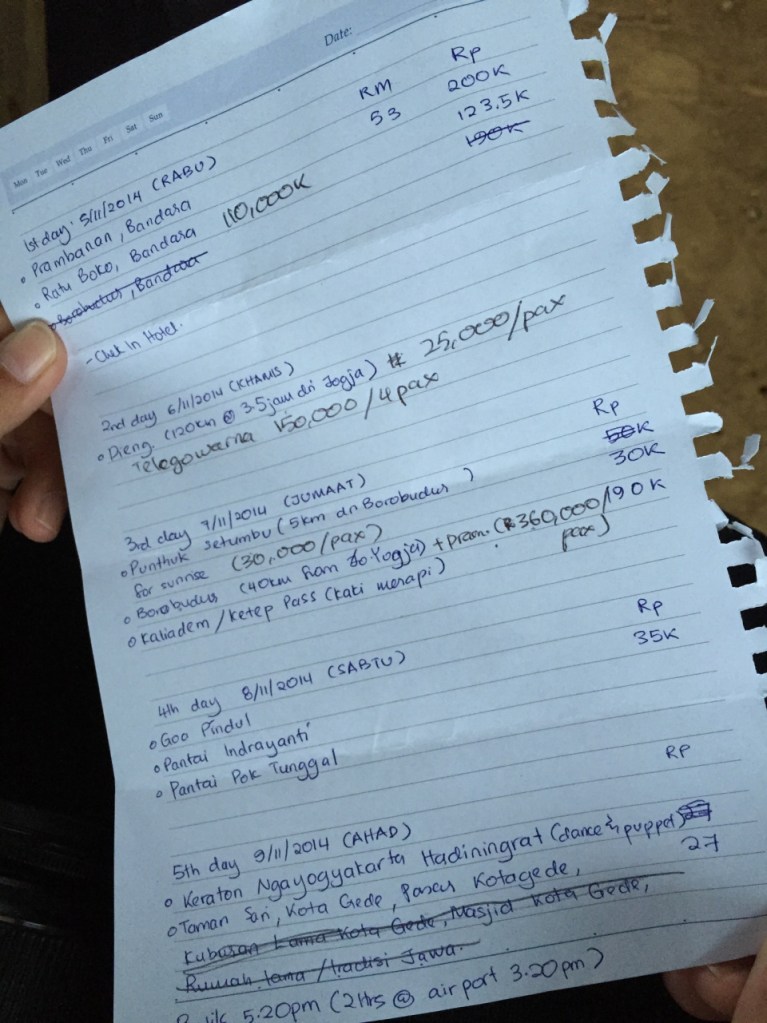 Date:
Mon Tue Wed Thu Fri Sat Sun
RM Rp
1st day: 5/11/2014 (RABU) 53 200K
• Prambanan, Bandara 123.5K
• Ratu Boko, Bandara 110,000K 190K
• Borobudur, Bandara
- Chek In Hotel.
2nd day 6/11/2014 (KHAMIS)
• Dieng. (120km @ 3.5jam dri Jogja) # 25,000/pax
Telegowarna 150,000/4pax
Rp
3rd day 7/11/2014 (JUMAAT) 50K
• Punthuk Setumbu (5km dri Borobudur) 30K
for sunrise (30,000/pax)
• Borobudur (40km from to Yogja) + Pram. (R360,000/ 190K
pax)
• Kaliadem / Ketep Pass (kaki merapi)
Rp
4th day 8/11/2014 (SABTU) 35K
• Goa Pindul
• Pantai Indrayanti
• Pantai Pok Tunggal
RP
5th day 9/11/2014 (AHAD)
• Keraton Ngayogyakarta Hadiningrat (dance & puppet)
• Taman Sari, Kota Gede, Pasar Kotagede, 27
Kubasan Lama Kota Gede, Masjid Kota Gede,
Rumah lama / tradisi Jawa.
5.20pm (2Hrs @ airport 3.20pm)